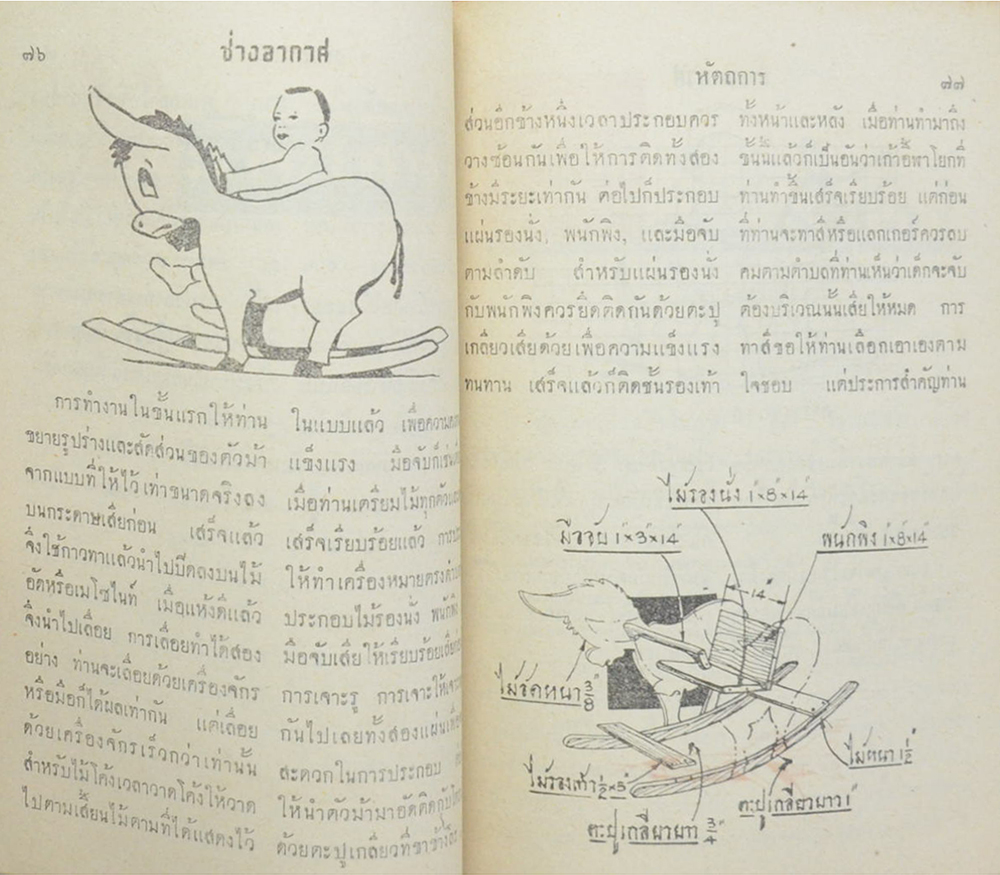 ๗๖
ช่างอากาศ
การทำงานในขั้นแรกให้ท่าน
ขยายรูปร่างและสัดส่วนของตัวม้า
จากแบบที่ให้ไว้เท่าขนาดจริงลง
บนกระดาษเสียก่อน เสร็จแล้ว
จึงใช้กาวทาแล้วนำไปปิดลงบนไม้
อัดหรือเมโซไนท์ เมื่อแห้งดีแล้ว
จึงนำไปเลื่อย การเลื่อยทำได้สอง
อย่าง ท่านจะเลื่อยด้วยเครื่องจักร
หรือมือก็ได้ผลเท่ากัน แต่เลื่อย
ด้วยเครื่องจักรเร็วกว่าเท่านั้น
สำหรับไม้โค้งเวลาวาดโค้งให้วาด
ไปตามเสี้ยนไม้ตามที่ได้แสดงไว้
ในแบบแล้ว เพื่อความ
แข็งแรง มือจับก็เช่น
เมื่อท่านเตรียมไม้ทุกตัว
เสร็จเรียบร้อยแล้ว
ให้ทำเครื่องหมายตรง
ประกอบไม้รองนั่ง พนักพิง
มือจับเสียให้เรียบร้อย
การเจาะรู การเจาะให้เจาะ
กันไปเลยทั้งสองแผ่น
สะดวกในการประกอบ
ให้นำตัวม้ามาอัดติดกับ
ด้วยตะปูเกลียวที่ขาข้าง
หัตถการ
๗๗
ส่วนอีกข้างหนึ่งเวลาประกอบควร
วางซ้อนกันเพื่อให้การติดทั้งสอง
ข้างมีระยะเท่ากัน ต่อไปก็ประกอบ
แผ่นรองนั่ง, พนักพิง, และมือจับ
ตามลำดับ สำหรับแผ่นรองนั่ง
กับพนักพิงควรยึดติดกันด้วยตะปู
เกลียวเสียด้วยเพื่อความแข็งแรง
ทนทาน เสร็จแล้วก็ติดชั้นรองเท้า
ทั้งหน้าและหลัง เมื่อท่านทำมาถึง
ขั้นนี้แล้วก็เป็นอันว่าเก้าอี้พาโยกที่
ท่านทำขึ้นเสร็จเรียบร้อย แต่ก่อน
ที่ท่านจะทาสีหรือแลกเกอร์ควรลบ
คมตามตำบลที่ท่านเห็นว่าเด็กจะจับ
ต้องบริเวณนั้นเสียให้หมด การ
ทาสีขอให้ท่านเลือกเอาเองตาม
ใจชอบ แต่ประการสำคัญท่าน
ไม้รองนั่ง 1"×8"×14"
มือจับ 1"×3"×14"
พนักพิง 1"×8"×14"
14"
ไม้อัดหนา 3/8"
ไม้หนา 1 1/2"
ไม้รองเท้า 1/2"×5"
ตะปูเกลียวยาว 1"
ตะปูเกลียวยาว 3/4"